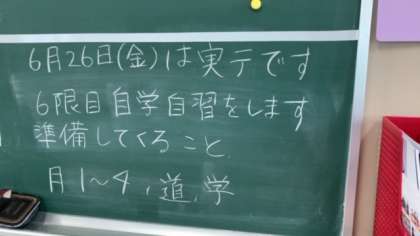 6月26日(金)は実テです
6限目自学自習をします
準備してくること
月1〜4,道,学